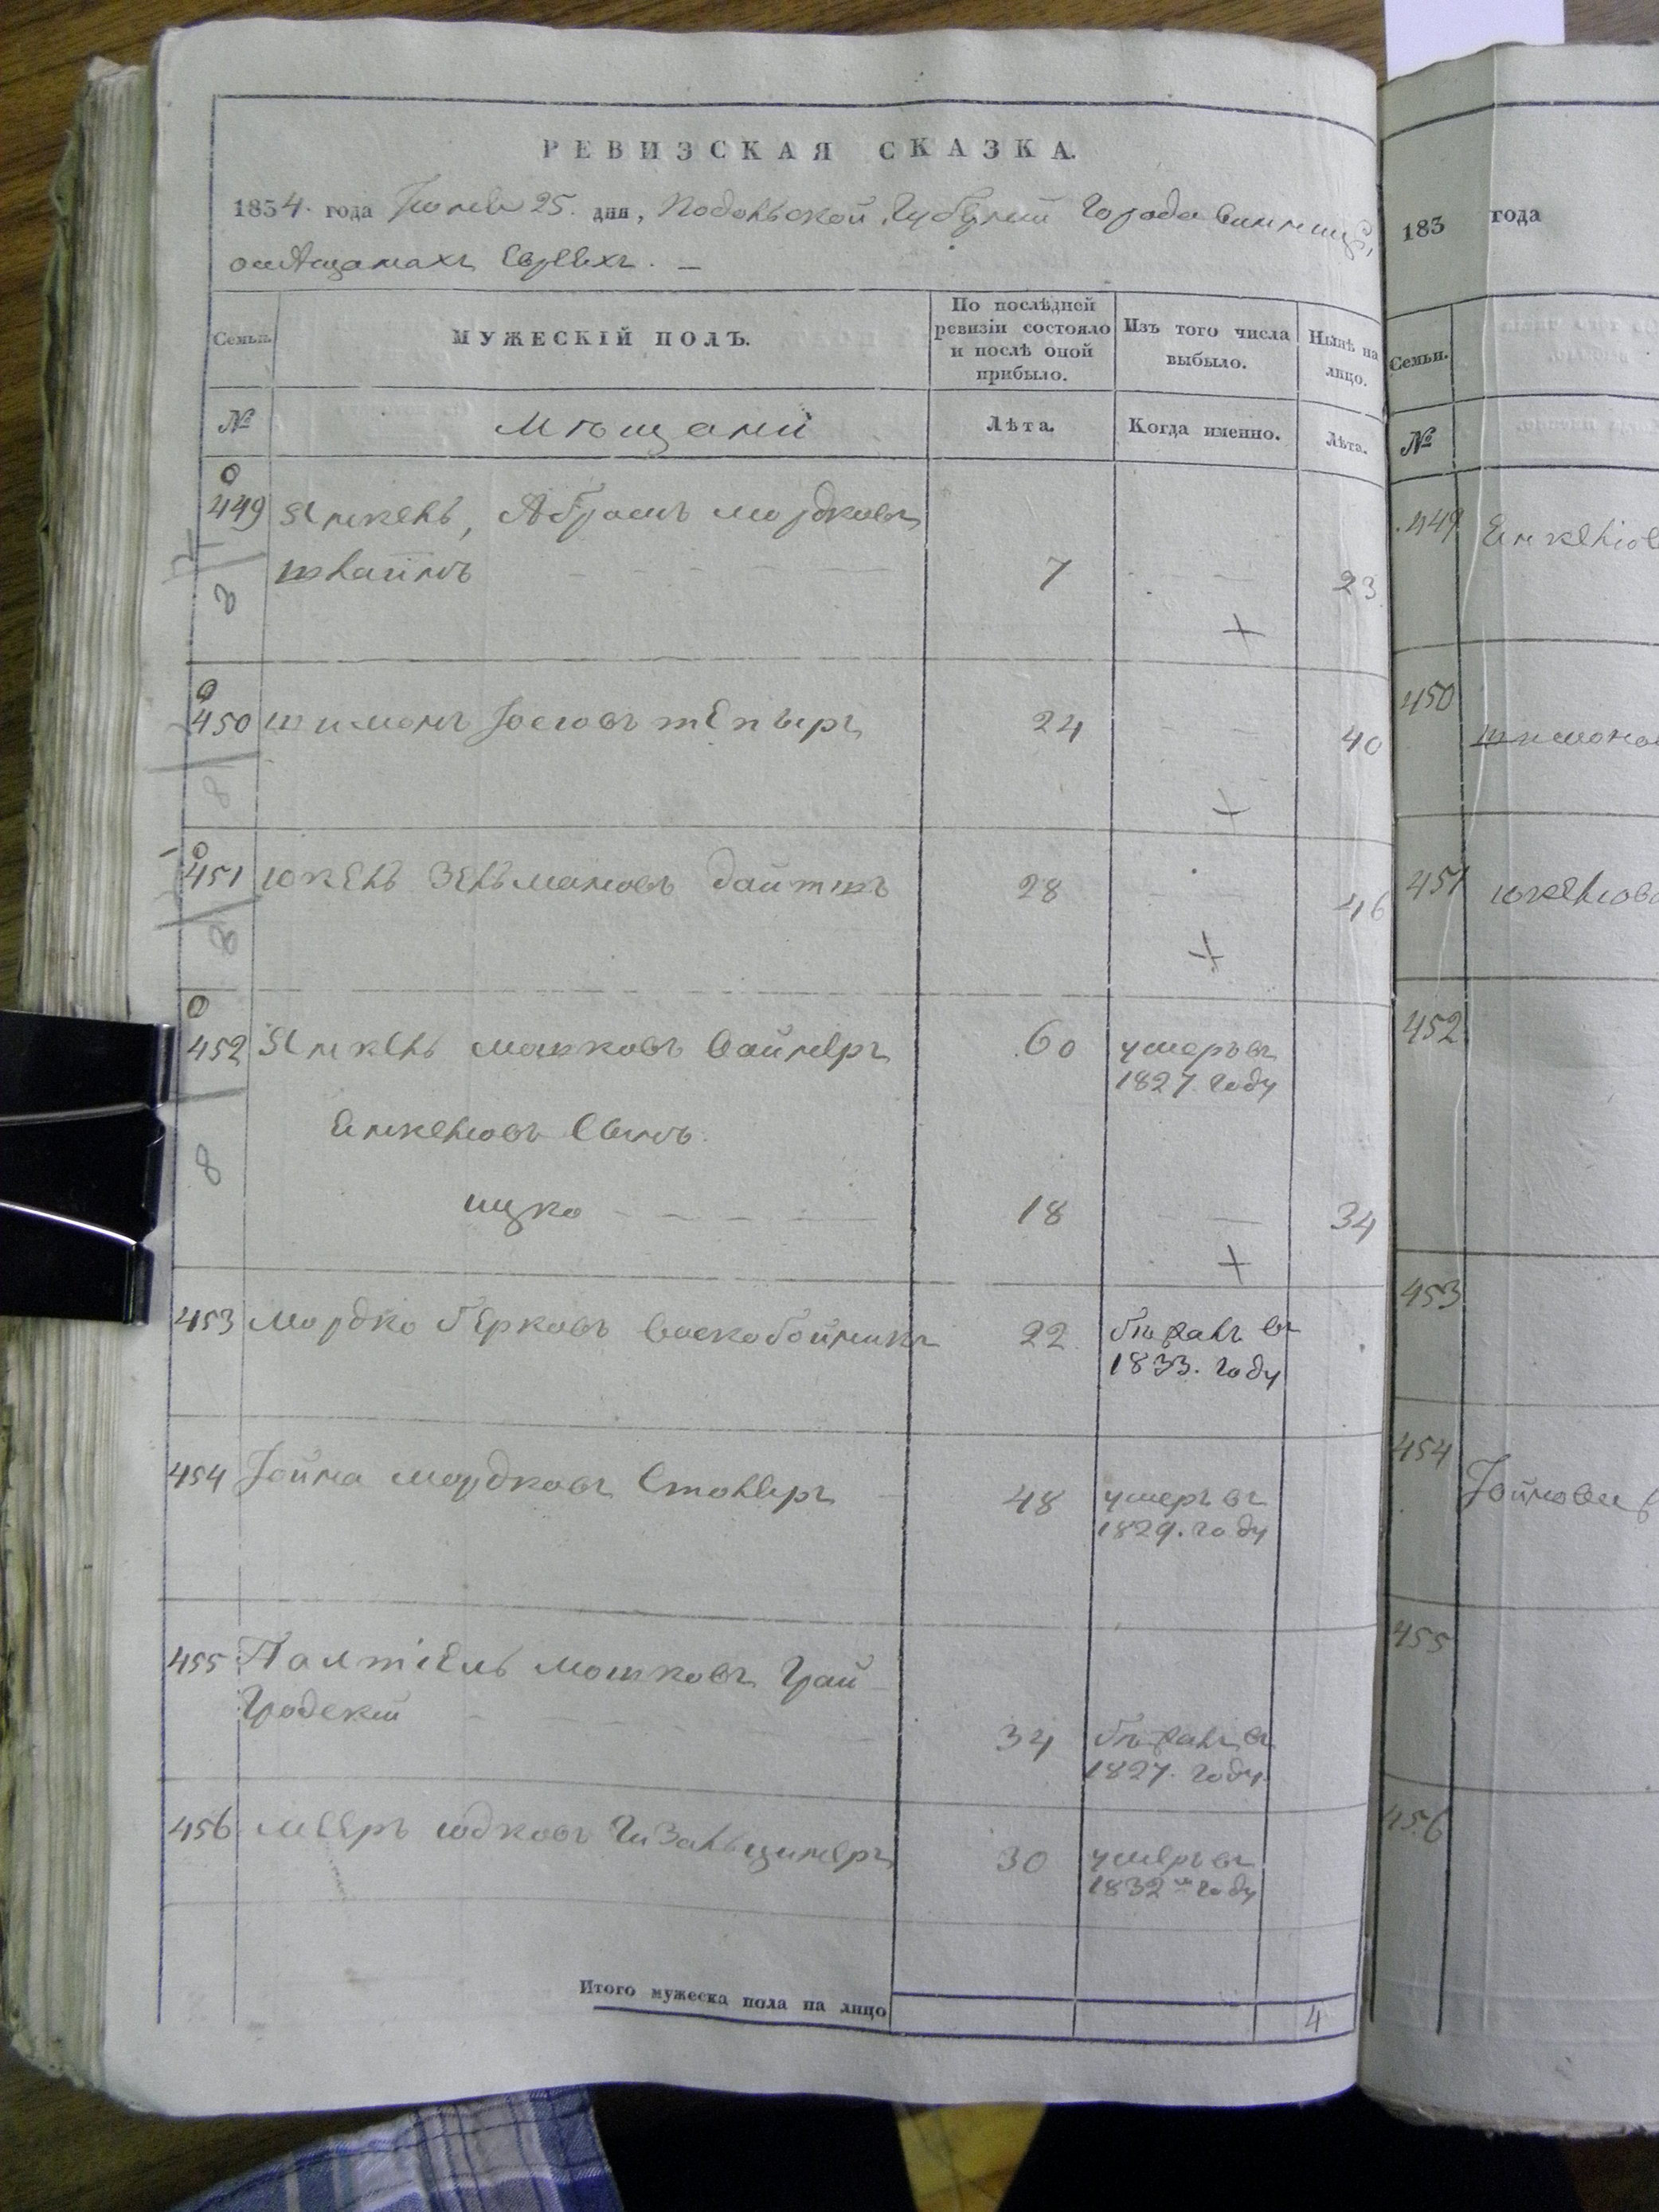 РЕВИЗСКАЯ СКАЗКА.
1834. года Іюня 25. дня, Подольской Губерніи Города Винницы,
омѣщанахъ Евреяхъ. —
Семьи.
МУЖЕСКІЙ ПОЛЪ.
По послѣдней
ревизіи состояло
и послѣ оной
прибыло.
Изъ того числа
выбыло.
Нынѣ на
лицо.
№
Мѣщани
Лѣта.
Когда именно.
Лѣта.
449 Янкель, Абрамъ мордковъ
штайнъ 7 23
8
450 шимонъ Іосіовъ тепъиръ 24 40
8
451 юкель Зельмановъ дайтшъ 28 46
8
452 Янкель мошковъ Вайнеръ 60 умеръ въ
1827. году
Енкеліовъ Сынъ
8
ицко 18 34
453 мордко берковъ Воскобойникъ 22 бѣжалъ въ
1833. году
454 Іойна мордковъ Столеръ 48 умеръ въ
1829. году
455 Палтіель мошковъ Грай
Гродскій 34 бѣжалъ въ
1827. году.
456 мееръ юдковъ Гизальцинеръ 30 умеръ въ
1832м году
Итого мужеска пола на лицо 4
183 года
Семьи.
№
449 Енкеліов
450
шимонов
451 юкеліова
452
453
454
Іойновы
455
456